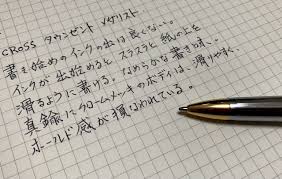 CROSS タウンゼント メダリスト
書き始めのインクの出は良くない…。
インクが出始めるとスラスラと紙の上を
滑るように書ける。なめらかな書き味…。
真鍮にクロームメッキのボディは、滑りやすく、
ホールド感が損なわれている。